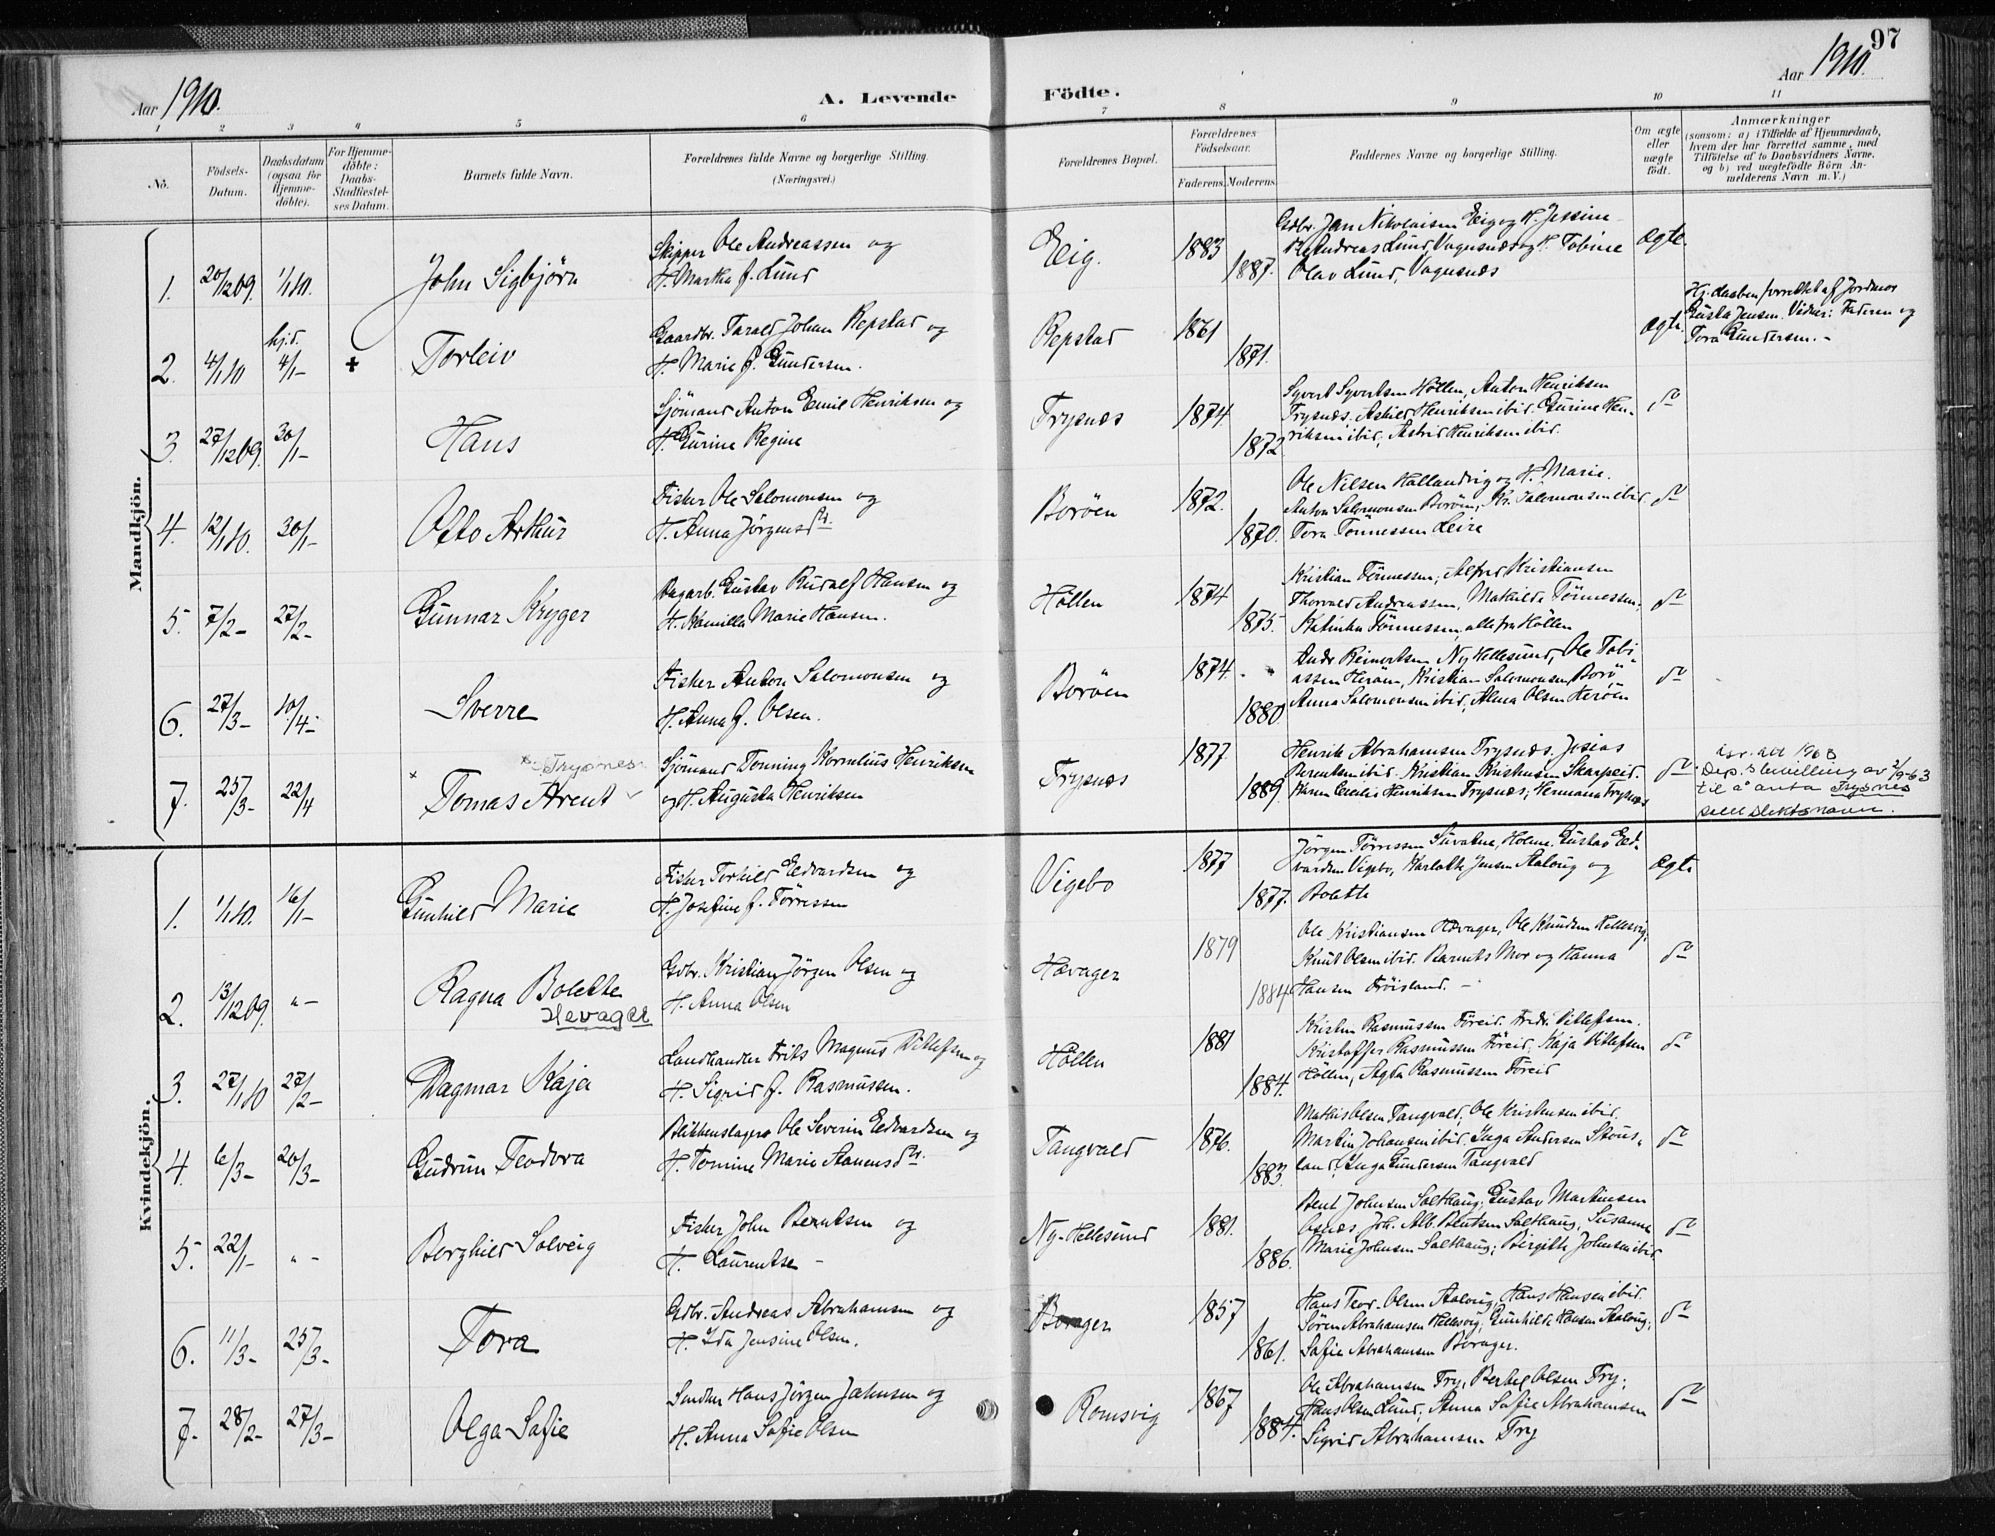 97
Aar 1910.
A. Levende Födte.
Aar 1910.
1 2 3 4 5 6 7 8 9 10 11
No.
Födsels-Datum.
Daabsdatum (ogsaa for Hjemme-döbte).
For Hjemme-döbte: Daabs-Stadfæstel-ses Datum.
Barnets fulde Navn.
Forældrenes fulde Navne og borgerlige Stilling.
(Næringsvei.)
Forældrenes Bopæl.
Forældrenes Födselsaar.
Faderens. Moderens.
Faddernes Navne og borgerlige Stilling.
Om ægte eller uægte födt.
Anmærkninger
(saasom: a) i Tilfælde af Hjemmedaab,
hvem der har forrettet samme, med
Tilföielse af to Daabsvidners Navne,
og b) ved uægtefödte Börn An-
melderens Navn m. V.)
Mandkjön.
1. 20/12 09. 1/1 10. John Sigbjörn
Skipper Ole Andreassen og
H. Martha f. Lund
Eig. 1883 1887.
Gdbr. Jan Nikolaisen Eig og H. Jessine
Andreas Lund, Vagesnes og H. Tobine
Olav Lund, Vagesnes
ægte.
2. 4/1 10 hj.d. 4/1- + Torleiv
Gaardbr. Tarald Johan Repstad og
H. Marie f. Gundersen.
Repstad 1861 1871.
ægte.
Hj. daaben forrettet af Jordmor
Gusta Jensen. Vidner: Faderen og
Tora Gundersen. -
3. 27/12 09. 30/1- Hans
Sjömand Anton Emil Henriksen og
H. Gurine Regine
Trysnes 1874. 1872
Syvert Syvertsen Höllen, Anton Henriksen
Trysnes, Askild Henriksen ibid. Gurine Hen-
riksen ibid, Astrid Henriksen ibid.
do
4. 12/1 10. 30/1- Otto Arthur
Fisker Ole Salomonsen og
H. Anna Jörgensdtr.
Boröen 1872. 1870.
Ole Nilsen Hallandvig og H. Marie.
Anton Salomonsen Boröen, Kr. Salomonsen ibid
Tora Tönnessen Leire
do
5. 7/2- 27/2- Gunnar Kryger
Dagarb. Gustav Rudolf Hansen og
H. Kamilla Marie Hansen.
Höllen 1874 1875.
Kristian Tönnessen, Alfred Kristiansen
Thorvald Andreassen, Mathilde Tönnessen,
Kathinka Tönnessen, alle fra Höllen
do
6. 27/3- 10/4- Sverre
Fisker Anton Salomonsen og
H. Anna f. Olsen.
Boröen 1874. 1880
Andr. Reinertsen Ny Hellesund, Ole Tobi-
assen Heröen, Kristian Salomonsen Borö,
Anna Salomonsen ibid, Alma Olsen Heröen
do
7. 25/3- 22/4 Tomas Arent
× Trysnes
Sjömand Tönning Kornelius Henriksen
og H. Augusta Henriksen
Trysnes 1877 1889.
Henrik Abrahamsen Trysnes. Josias
Berentsen ibid. Kristian Kristensen Skarpeid.
Karen Cecilie Henriksen Trysnes; Hermana Trysnes
do
Dep.s bevilling av 2/9-63
til å anta Trysnes
som slektsnavn.
Kvindekjön.
1. 1/1 10. 16/1- Gunhild Marie
Fisker Torkild Edvardsen og
H. Josefine f. Törressen
Vigebo 1877 1877.
Jörgen Törressen Holme. Gustav Ed-
vardsen Vigebo, Karlotte Jensen Aalong og
Bolette
ægte
2. 13/12 09. "- Ragna Bolette
Hevager
Gdbr. Kristian Jörgen Olsen og
H. Anna Olsen
Hævager 1879 1884
Ole Kristiansen Hævager, Ole Knudsen Hellesvig,
Knut Olsen ibid. Barnets Mor og Hanna
Hansen Fröisland. -
do
3. 27/1 10 27/2- Dagmar Kaja
Landhandler Frits Magnus Ditlefsen og
H. Sigrid f. Rasmussen.
Höllen 1881 1884.
Kristen Rasmussen Föreid. Fredr. Ditlefsen.
Kristoffer Rasmussen Föreid, Kaja Ditlefsen
Höllen, Agda Rasmussen Föreid
do
4. 6/3- 20/3- Gudrun Teodora
Blikkenslager Ole Severin Edvardsen og
H. Tomine Marie Aanensdtr.
Tangvald 1876. 1883.
Mathis Olsen Tangvald, Ole Kristensen ibid.
Martin Johansen ibid. Inga Andersen Stous-
land, Inga Gundersen Tangvald
do
5. 22/1- "- Borghild Solveig
Fisker John Berntsen og
H. Laurentse -
Ny-Hellesund 1881. 1886.
Bent Johnsen Salthaug, Gustav Martinsen
Osnes, Joh. Alb. Bentsen Salthaug, Susanne
Marie Johnsen Salthaug; Birgitte Johnsen ibid.
do
6. 11/3- 25/3- Tora
Gdbr. Andreas Abrahamsen og
H. Ida Jensine Olsen.
Borager 1857 1861.
Hans Teod. Olsen Aalong, Hans Hansen ibid.
Sören Abrahamsen Hellesvig, Gunhilde Hansen Aalong,
Safie Abrahamsen Borager.
do
7. 28/2- 27/3- Olga Safie
Hans Jörgen Jahnsen og
H. Anna Safie Olsen
Romsvig 1867 1884.
Ole Abrahamsen Try, Bertel Olsen Try;
Hans Olsen Lund, Anna Safie Abrahamsen
Sigrid Abrahamsen Try
do